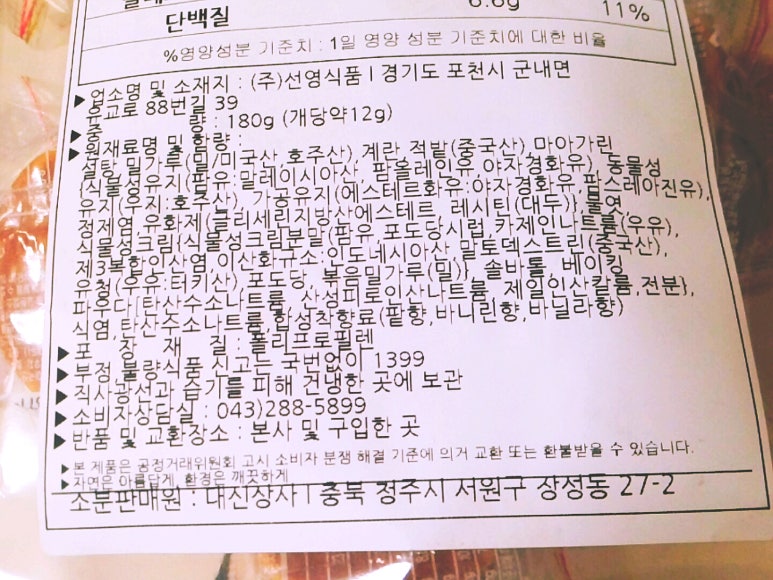 단백질 6.6g 11%
%영양성분 기준치 : 1일 영양 성분 기준치에 대한 비율
▶업소명 및 소재지 : (주)선영식품 | 경기도 포천시 군내면
유교로 88번길 39
▶중 량 : 180g (개당약12g)
▶원재료명 및 함량 :
설탕, 밀가루(밀/미국산,호주산), 계란, 적팥(중국산), 마아가린
{식물성유지(팜유:말레이시아산, 팜올레인유,야자경화유), 동물성
유지(우지:호주산), 가공유지(에스테르화유:야자경화유,팜스테아진유),
정제염, 유화제(글리세린지방산에스테르, 레시틴(대두)} 물엿,
식물성크림{식물성크림분말(팜유,포도당시럽,카제인나트륨(우유),
제3복합인산염,이산화규소:인도네시아산,말토덱스트린(중국산),
유청(우유:터키산),포도당, 볶음밀가루(밀)}, 솔바톨, 베이킹
파우다[탄산수소나트륨, 산성피로인산나트륨, 제일인산칼륨,전분},
식염,탄산수소나트륨,합성착향료(팥향,바니린향,바닐라향)
▶포 장 재 질 : 폴리프로필렌
▶부정 불량식품 신고는 국번없이 1399
▶직사광선과 습기를 피해 건냉한 곳에 보관
▶소비자상담실 : 043)288-5899
▶반품 및 교환장소 : 본사 및 구입한 곳
▶본 제품은 공정거래위원회 고시 소비자 분쟁 해결 기준에 의거 교환 또는 환불받을 수 있습니다.
▶자연은 아름답게, 환경은 깨끗하게
소분판매원 : 대신상사 | 충북 청주시 서원구 장성동 27-2